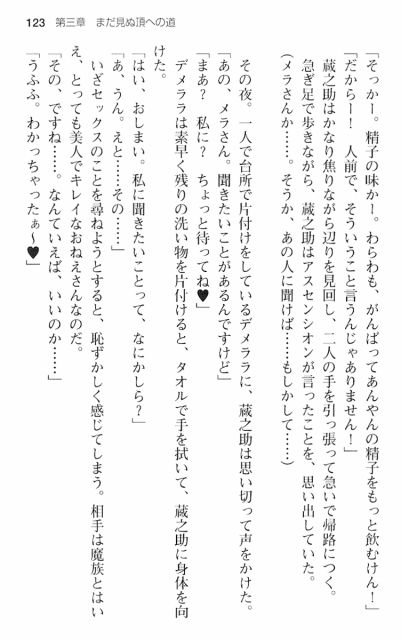 123 第三章 まだ見ぬ頂への道
「そっかー。精子の味かー。わらわも、がんばってあんやんの精子をもっと飲むけん！」
「だからー！ 人前で、そういうこと言うんじゃありません！」
蔵之助はかなり焦りながら辺りを見回し、二人の手を引っ張って急いで帰路につく。
急ぎ足で歩きながら、蔵之助はアスセンシオンが言ったことを、思い出していた。
（メラさんか……。そうか、あの人に聞けば……もしかして……）
その夜。一人で台所で片付けをしているデメララに、蔵之助は思い切って声をかけた。
「あの、メラさん。聞きたいことがあるんですけど」
「まあ？ 私に？ ちょっと待ってね♥」
デメララは素早く残りの洗い物を片付けると、タオルで手を拭いて、蔵之助に身体を向
けた。
「はい、おしまい。私に聞きたいことって、なにかしら？」
「あ、うん。えと……その……」
いざセックスのことを尋ねようとすると、恥ずかしく感じてしまう。相手は魔族とはい
え、とっても美人でキレイなおねえさんなのだ。
「その、ですね……。なんていえば、いいのか……」
「うふふ。わかっちゃったぁ～♥」